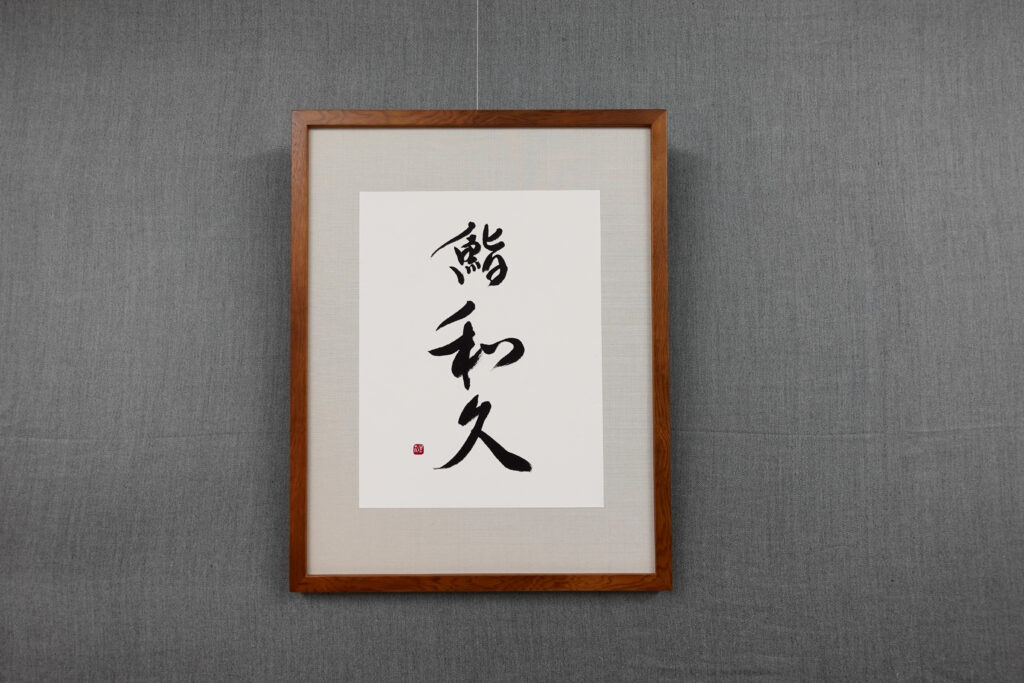 鮨
和
久